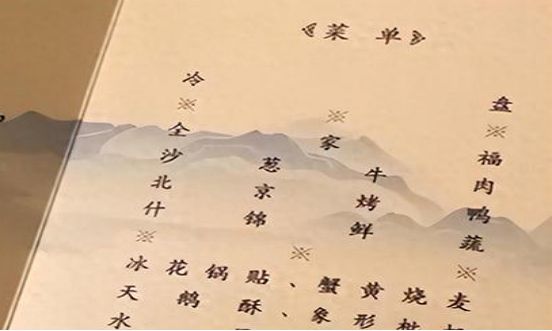 《菜 单》
冷 盘
※ ※ ※
全 家 福
沙 葱 牛 肉
北 京 烤 鸭
什 锦 鲜 蔬
※ ※ ※
冰 花 锅 贴 、 蟹 黄 烧 麦
天 鹅 酥 、 象 形
水